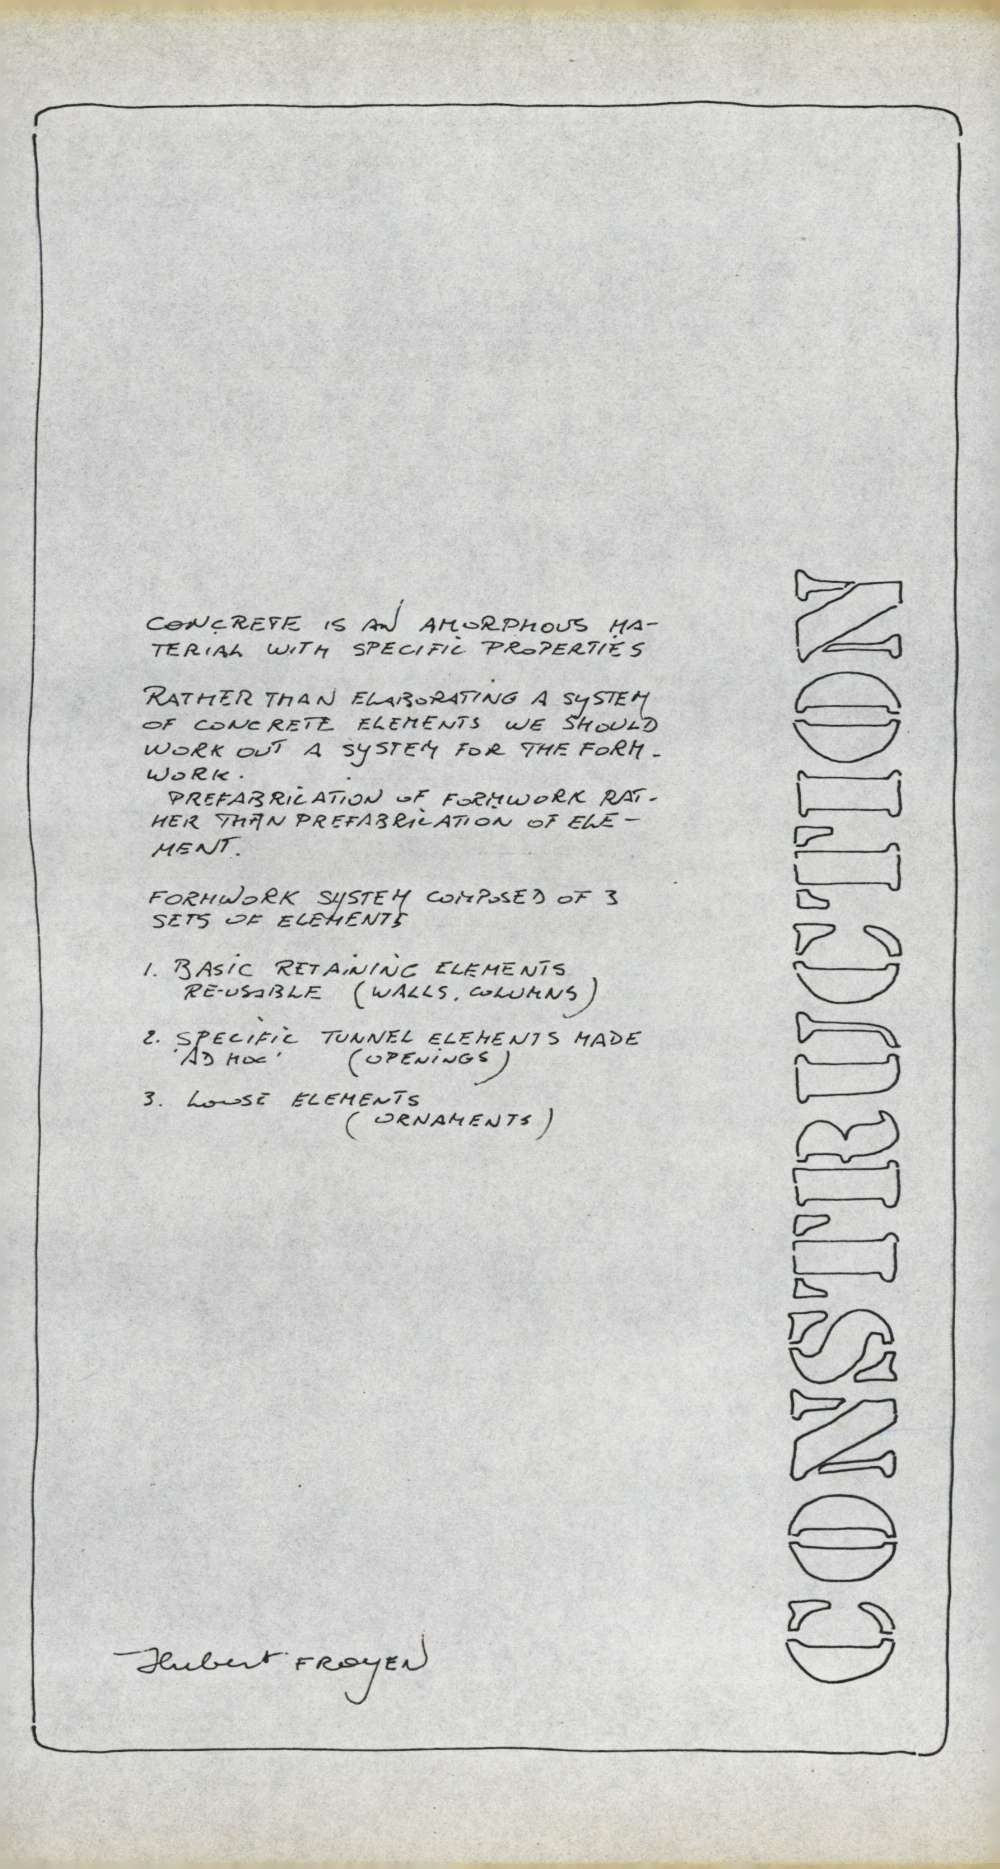 CONCRETE IS AN AMORPHOUS MA-
TERIAL WITH SPECIFIC PROPERTIES
RATHER THAN ELABORATING A SYSTEM
OF CONCRETE ELEMENTS WE SHOULD
WORK OUT A SYSTEM FOR THE FORM-
WORK.
PREFABRICATION OF FORMWORK RAT-
HER THAN PREFABRICATION OF ELE-
MENT.
FORMWORK SYSTEM COMPOSED OF 3
SETS OF ELEMENTS
1. BASIC RETAINING ELEMENTS
RE-USABLE (WALLS, COLUMNS)
2. SPECIFIC TUNNEL ELEMENTS MADE
'AD HOC' (OPENINGS)
3. LOOSE ELEMENTS
(ORNAMENTS)
CONSTRUCTION
Hubert FROYEN